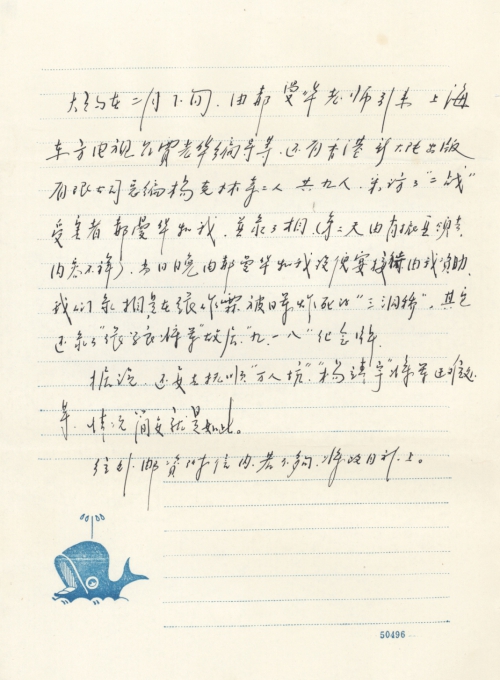 大约在二月下旬，由郝曼华老师引来上海
东方电视台 贾老华编导等，还有香港新大陆出版
有限公司总编杨克林等二人共九人，采访了“二战”
受害者郝曼华和我，并录了相，(第二天由
内容不详)。当日晚由郝曼华和我设便宴接待由我资助，
我们录相是在张作霖被日军炸死的“三洞桥”，其它
还录了“张学良将军”故居，“九·一八”纪念
据说，还要去抚顺“万人坑”“杨靖宇”将军
等，情况简要就是如此。
给 邮资 信内，若不夠，将改日补上。
50496